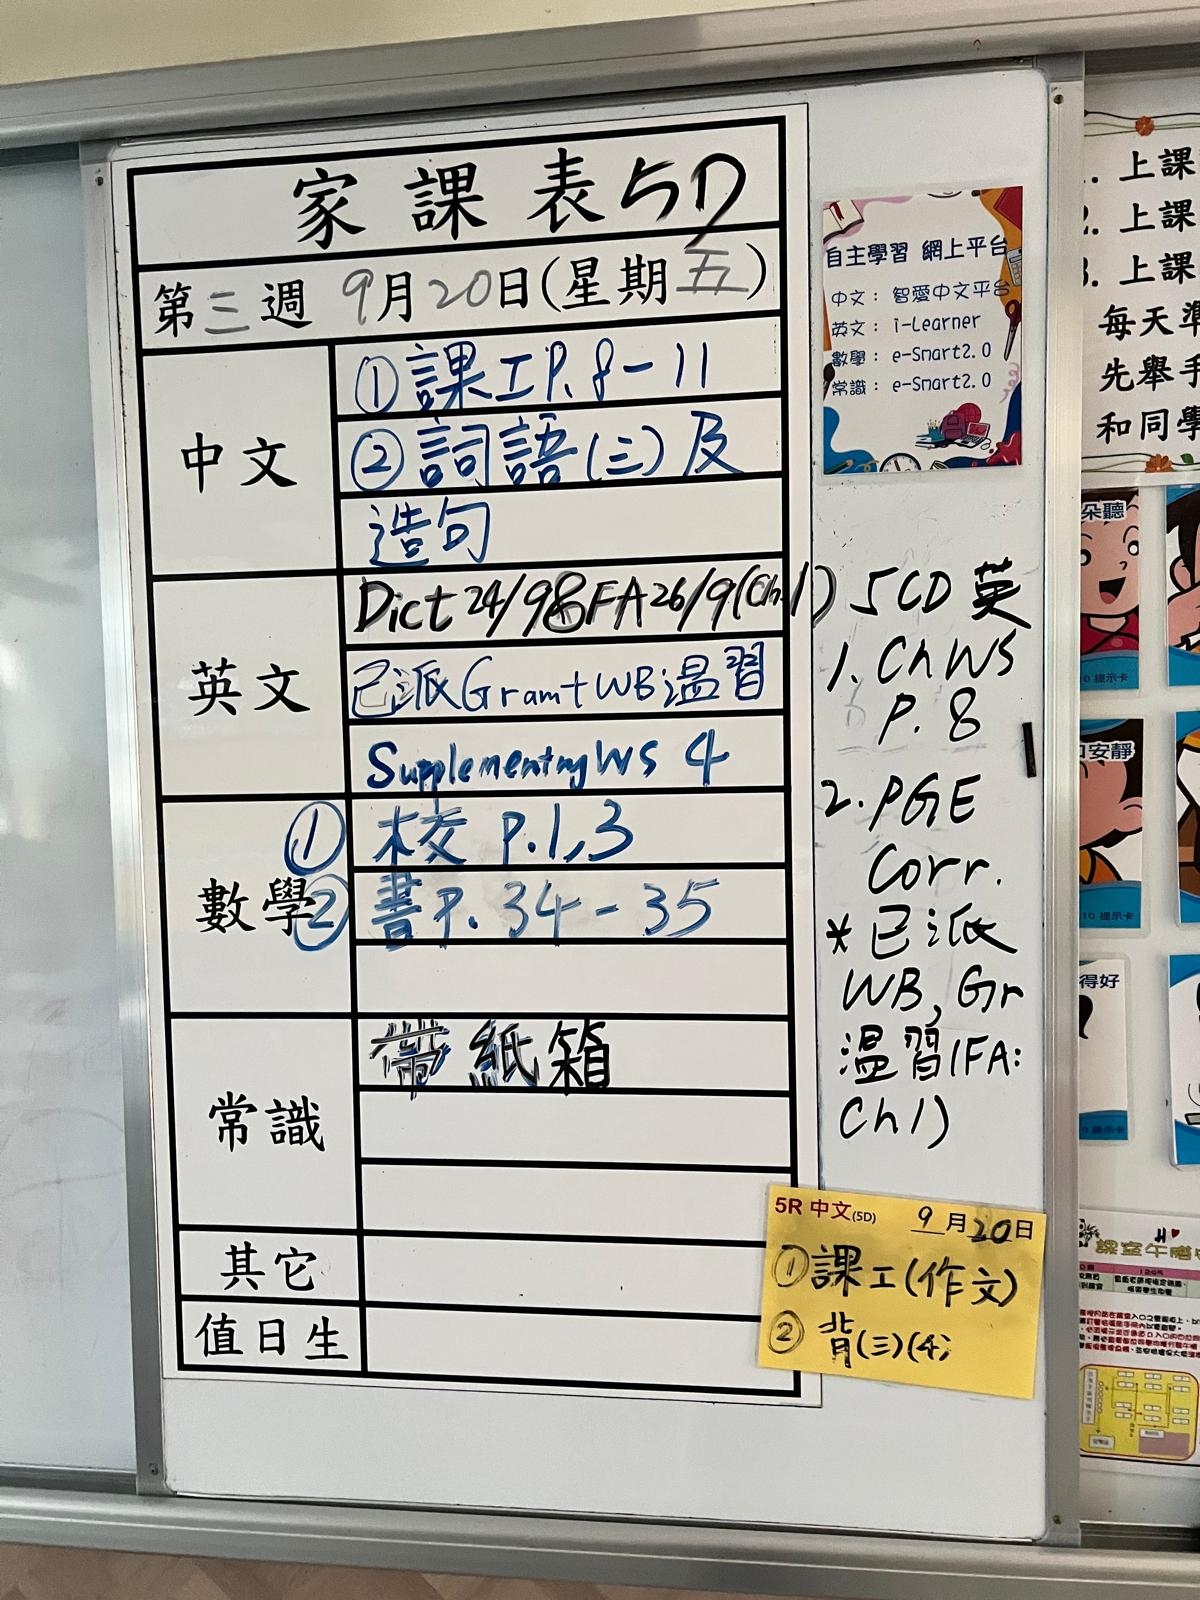 家課表5D
第三週 9月20日(星期五)
中文
①課工P.8-11
②詞語(三)及
造句
英文
Dict 24/9 & FA 26/9 (Ch.1)
已派Gram+WB溫習
Supplementary WS 4
數學
① 校 P.1,3
② 書P. 34-35
常識
帶紙箱
其它
值日生
自主學習 網上平台
中文: 智愛中文平台
英文: i-Learner
數學: e-Smart2.0
常識: e-Smart2.0
5CD 英
1. Ch WS
P. 8
2. PGE
Corr.
*已派
WB, Gr
溫習(FA:
Ch1)
5R 中文(5D) 9月20日
①課工(作文)
② 背(三)(4)
1. 上課
2. 上課
3. 上課
每天準
先舉手
和同學
朵聽
10 提示卡
口安靜
10 提示卡
得好
提示卡
課室午膳